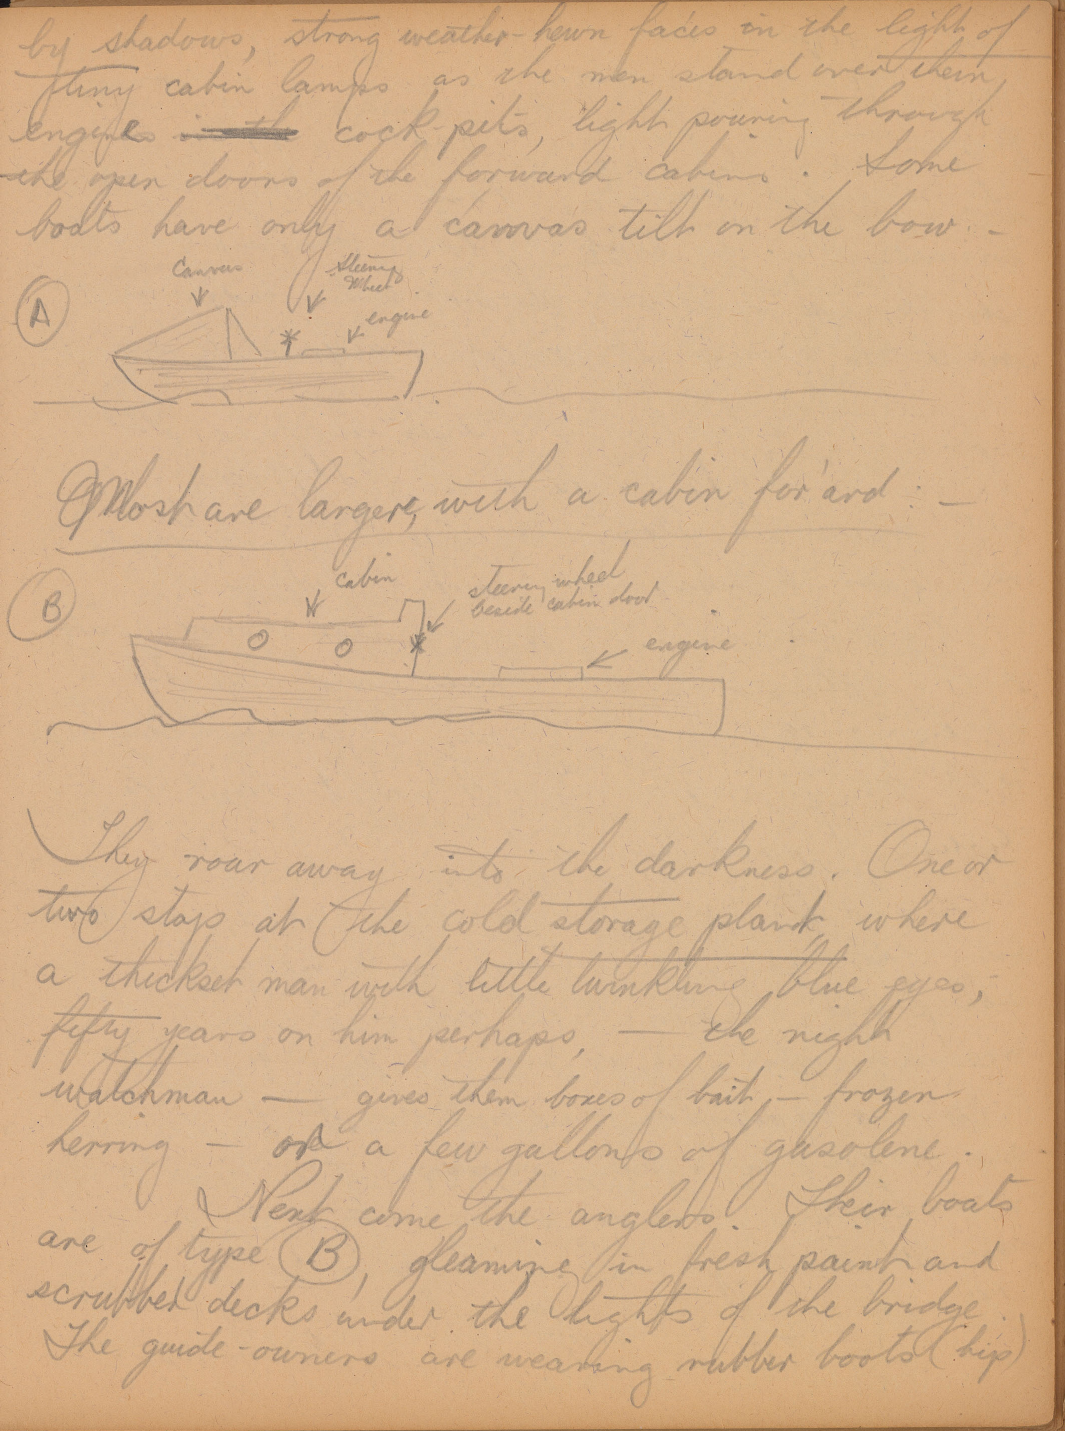 by shadows, strong weather-hewn faces in the light of
tiny cabin lamps as the men stand over their
engines in the cock-pits, light pouring through
the open doors of the forward cabins. Some
boats have only a canvas tilt on the bow. -
Canvas
Steering
Wheel
engine
A
Most are larger, with a cabin for'ard : -
cabin
steering wheel
beside cabin door
engine
B
They roar away into the darkness. One or
two stop at the cold storage plant, where
a thickset man with little twinkling blue eyes,
fifty years on him perhaps, — the night
watchman — gives them boxes of bait, - frozen
herring - or a few gallons of gasolene.
Next come the anglers. Their boats
are of type B, gleaming in fresh paint and
scrubbed decks under the lights of the bridge.
The guide-owners are wearing rubber boots (hip)